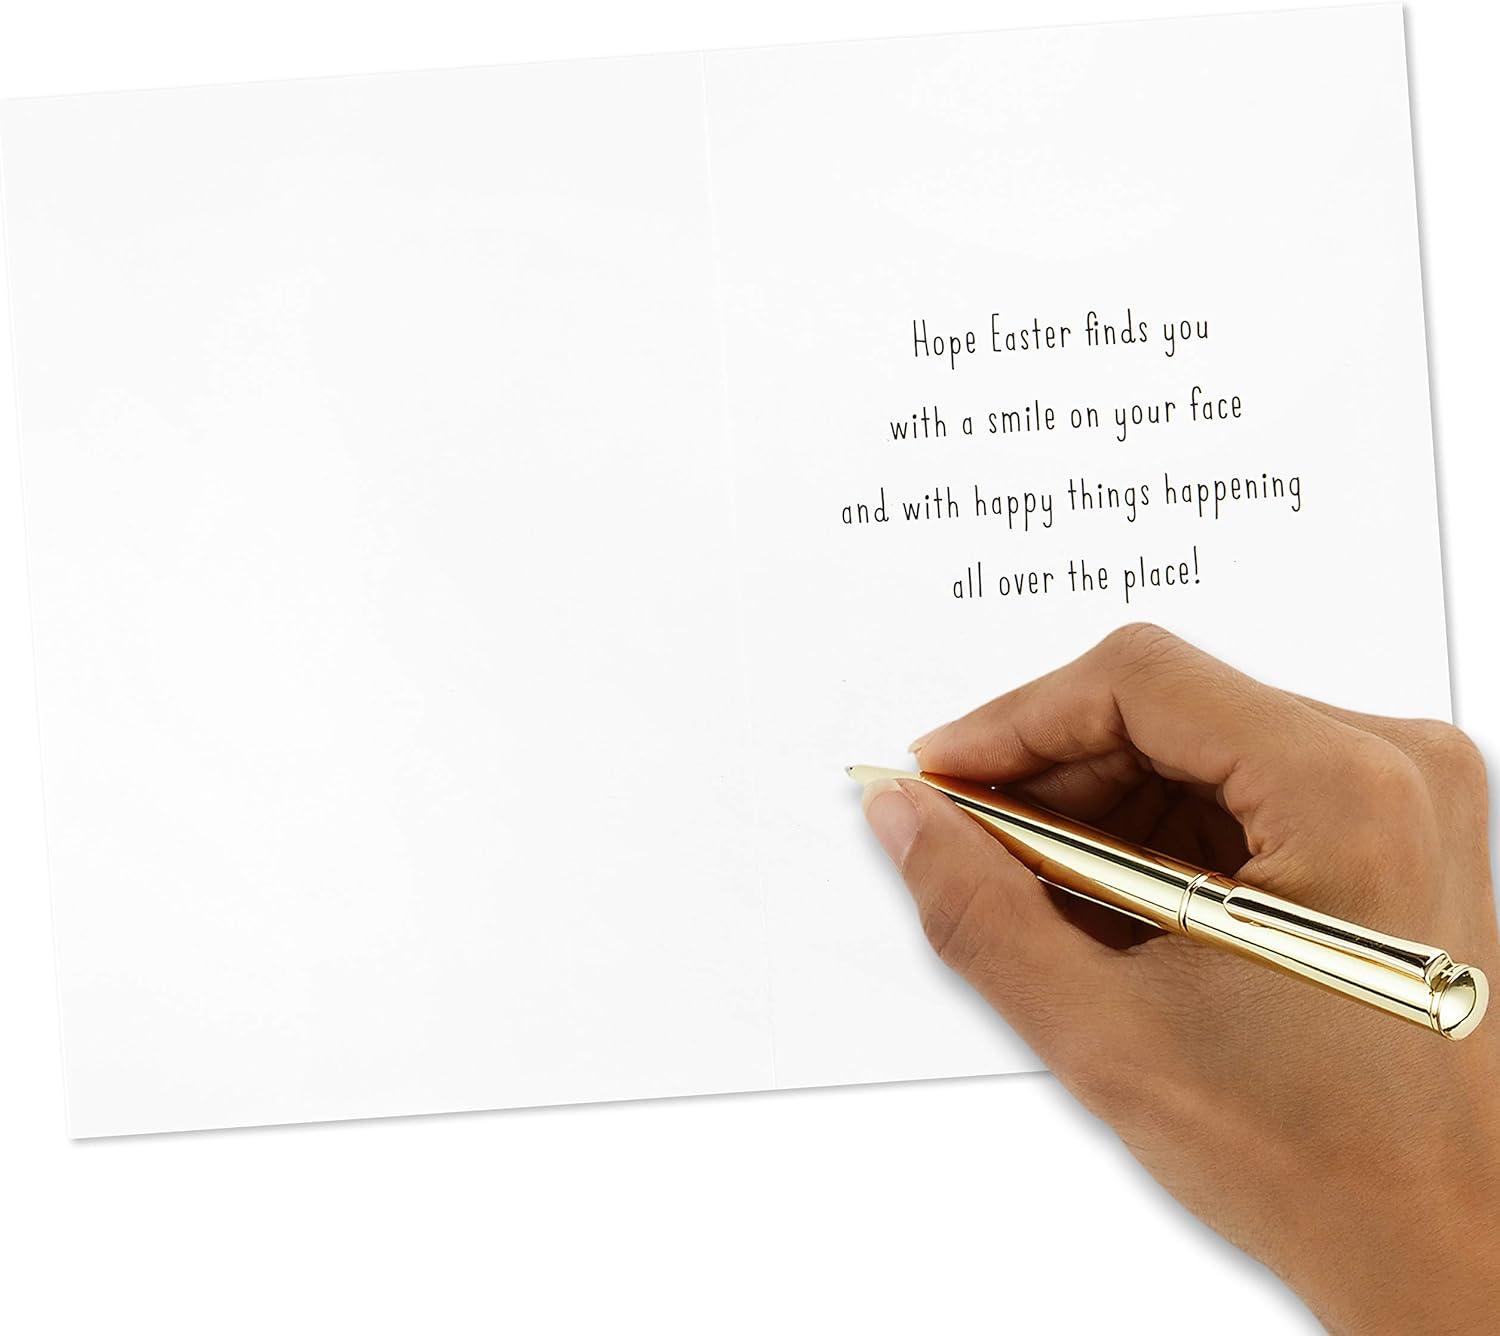 Hope Easter finds you
with a smile on your face
and with happy things happening
all over the place!